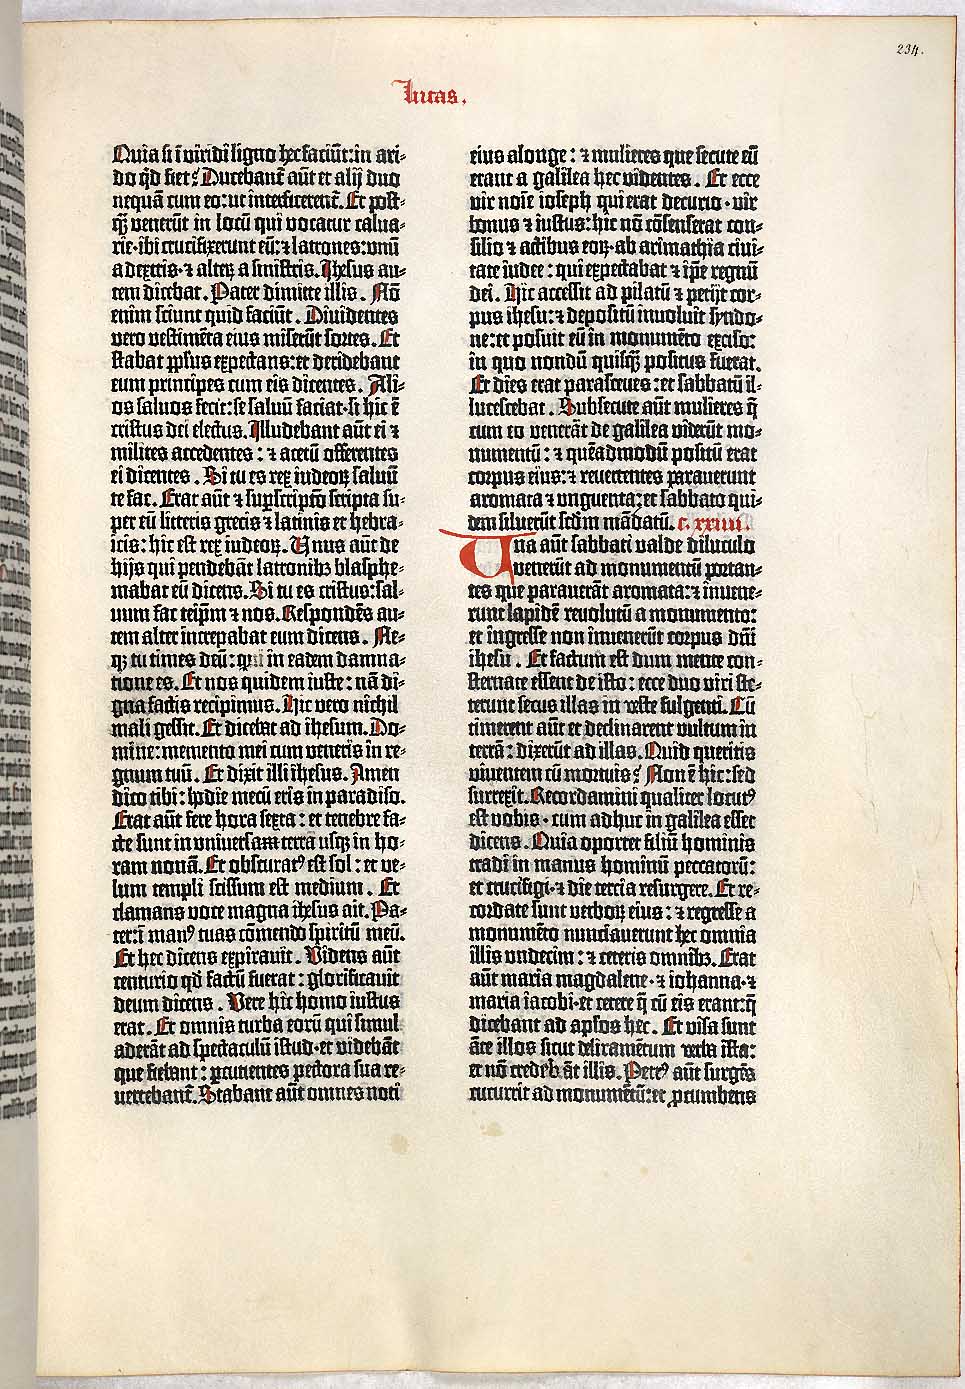 234.
Lucas.
Quia si ī viridi ligno hec faciūt: in ari-
do qd fiet? Ducebant̄ aūt et alij duo
nequā cum eo: ut interficerent̄. Et post-
q̄ȝ venerūt in locū qui vocatur calua-
rie· ibi crucifixerunt eū: ⁊ latrones: vnū
a dextris· ⁊ alterꝝ a sinistris. Ihesus au-
tem dicebat. Pater dimitte illis. Nō
enim sciunt quid faciūt. Diuidentes
vero vestimēta eius miserūt sortes. Et
stabat pp̄lus expectans: et deridebant
eum principes cum eis dicentes. Ali-
os saluos fecit: se saluū faciat· si hic ē
cristus dei electus. Illudebant aūt ei ⁊
milites accedentes: ⁊ acetū offerentes
ei dicentes. Si tu es rex iudeoꝝ saluū
te fac. Erat aūt ⁊ sup̄scriptō scripta su-
per eū litteris grecis ⁊ latinis et hebra-
icis: hic est rex iudeoꝝ. Unus aūt de
hijs qui pendebāt latronibȝ blasphe-
mabat eū dicens. Si tu es cristus: sal-
uum fac teip̄m ⁊ nos. Respondēs au-
tem alter increpabat eum dicens. Ne-
qȝ tu times deū: qui in eadem damna-
tione es. Et nos quidem iuste: nā di-
gna factis recipimus. Hic vero nichil
mali gessit. Et dicebat ad ihesum. Do-
mine: memento mei cum veneris in re-
gnum tuū. Et dixit illi ihesus. Amen
dico tibi: hodie mecū eris in paradiso.
Erat aūt fere hora sexta: et tenebre fa-
cte sunt in vniuersam terrā usqȝ in ho-
ram nonā. Et obscuratꝰ est sol: et ve-
lum templi scissum est medium. Et
clamans voce magna ihesus ait. Pa-
ter: ī manꝰ tuas cōmendo spiritū meū.
Et hec dicens expirauit. Videns aūt
centurio qd factū fuerat: glorificauit
deum dicens. Vere hic homo iustus
erat. Et omnis turba eorū qui simul
aderāt ad spectaculū istud· et videbāt
que fiebant: ꝑcutientes pectora sua re-
uertebant̄. Stabant aūt omnes noti
eius a longe: ⁊ mulieres que secute eū
erant a galilea hec videntes. Et ecce
vir noīe ioseph qui erat decurio· vir
bonus ⁊ iustus: hic nō cōsenserat con-
silio ⁊ actibus eoꝝ· ab arimathia ciui-
tate iudee: qui expectabat ⁊ ip̄e regnū
dei. Hic accessit ad pilatū ⁊ petijt cor-
pus ihesu: ⁊ depositū inuoluit syndo-
ne: et posuit eū in monumēto exciso:
in quo nondū quisq̄ȝ positus fuerat.
Et dies erat parasceues: et sabbatū il-
lucescebat. Subsecute aūt mulieres q̄
cum eo venerāt de galilea viderūt mo-
numentū: ⁊ quēadmodū positū erat
corpus eius: ⁊ reuertentes parauerunt
aromata ⁊ vnguenta: et sabbato qui-
dem siluerūt scd̄m mādatū. c. xxiiii.
Una aūt sabbati valde diluculo
venerūt ad monumentū portan-
tes que parauerāt aromata: ⁊ inuene-
runt lapidē reuolutū a monumento:
et ingresse non inuenerūt corpus dn̄i
ihesu. Et factum est dum mente con-
sternate essent de isto: ecce duo viri ste-
terunt secus illas in veste fulgenti. Cū
timerent aūt et declinarent vultum in
terrā: dixerūt ad illas. Quid queritis
viuentem cū mortuis? Non ē hic: sed
surrexit. Recordamini qualiter locutꝰ
est vobis· cum adhuc in galilea esset
dicens. Quia oportet filiū hominis
tradi in manus hominū peccatorū:
et crucifigi· ⁊ die tercia resurgere. Et re-
cordate sunt verboꝝ eius: ⁊ regresse a
monumēto nunciauerunt hec omnia
illis vndecim: ⁊ ceteris omnibȝ. Erat
aūt maria magdalene· ⁊ iohanna· ⁊
maria iacobi· et cetere q̄ cū eis erant: q̄
dicebant ad ap̄los hec. Et visa sunt
āte illos sicut deliramētum verba ista:
et nō credebāt illis. Petrꝰ aūt surgēs
cucurrit ad monumētū: et ꝓcumbens